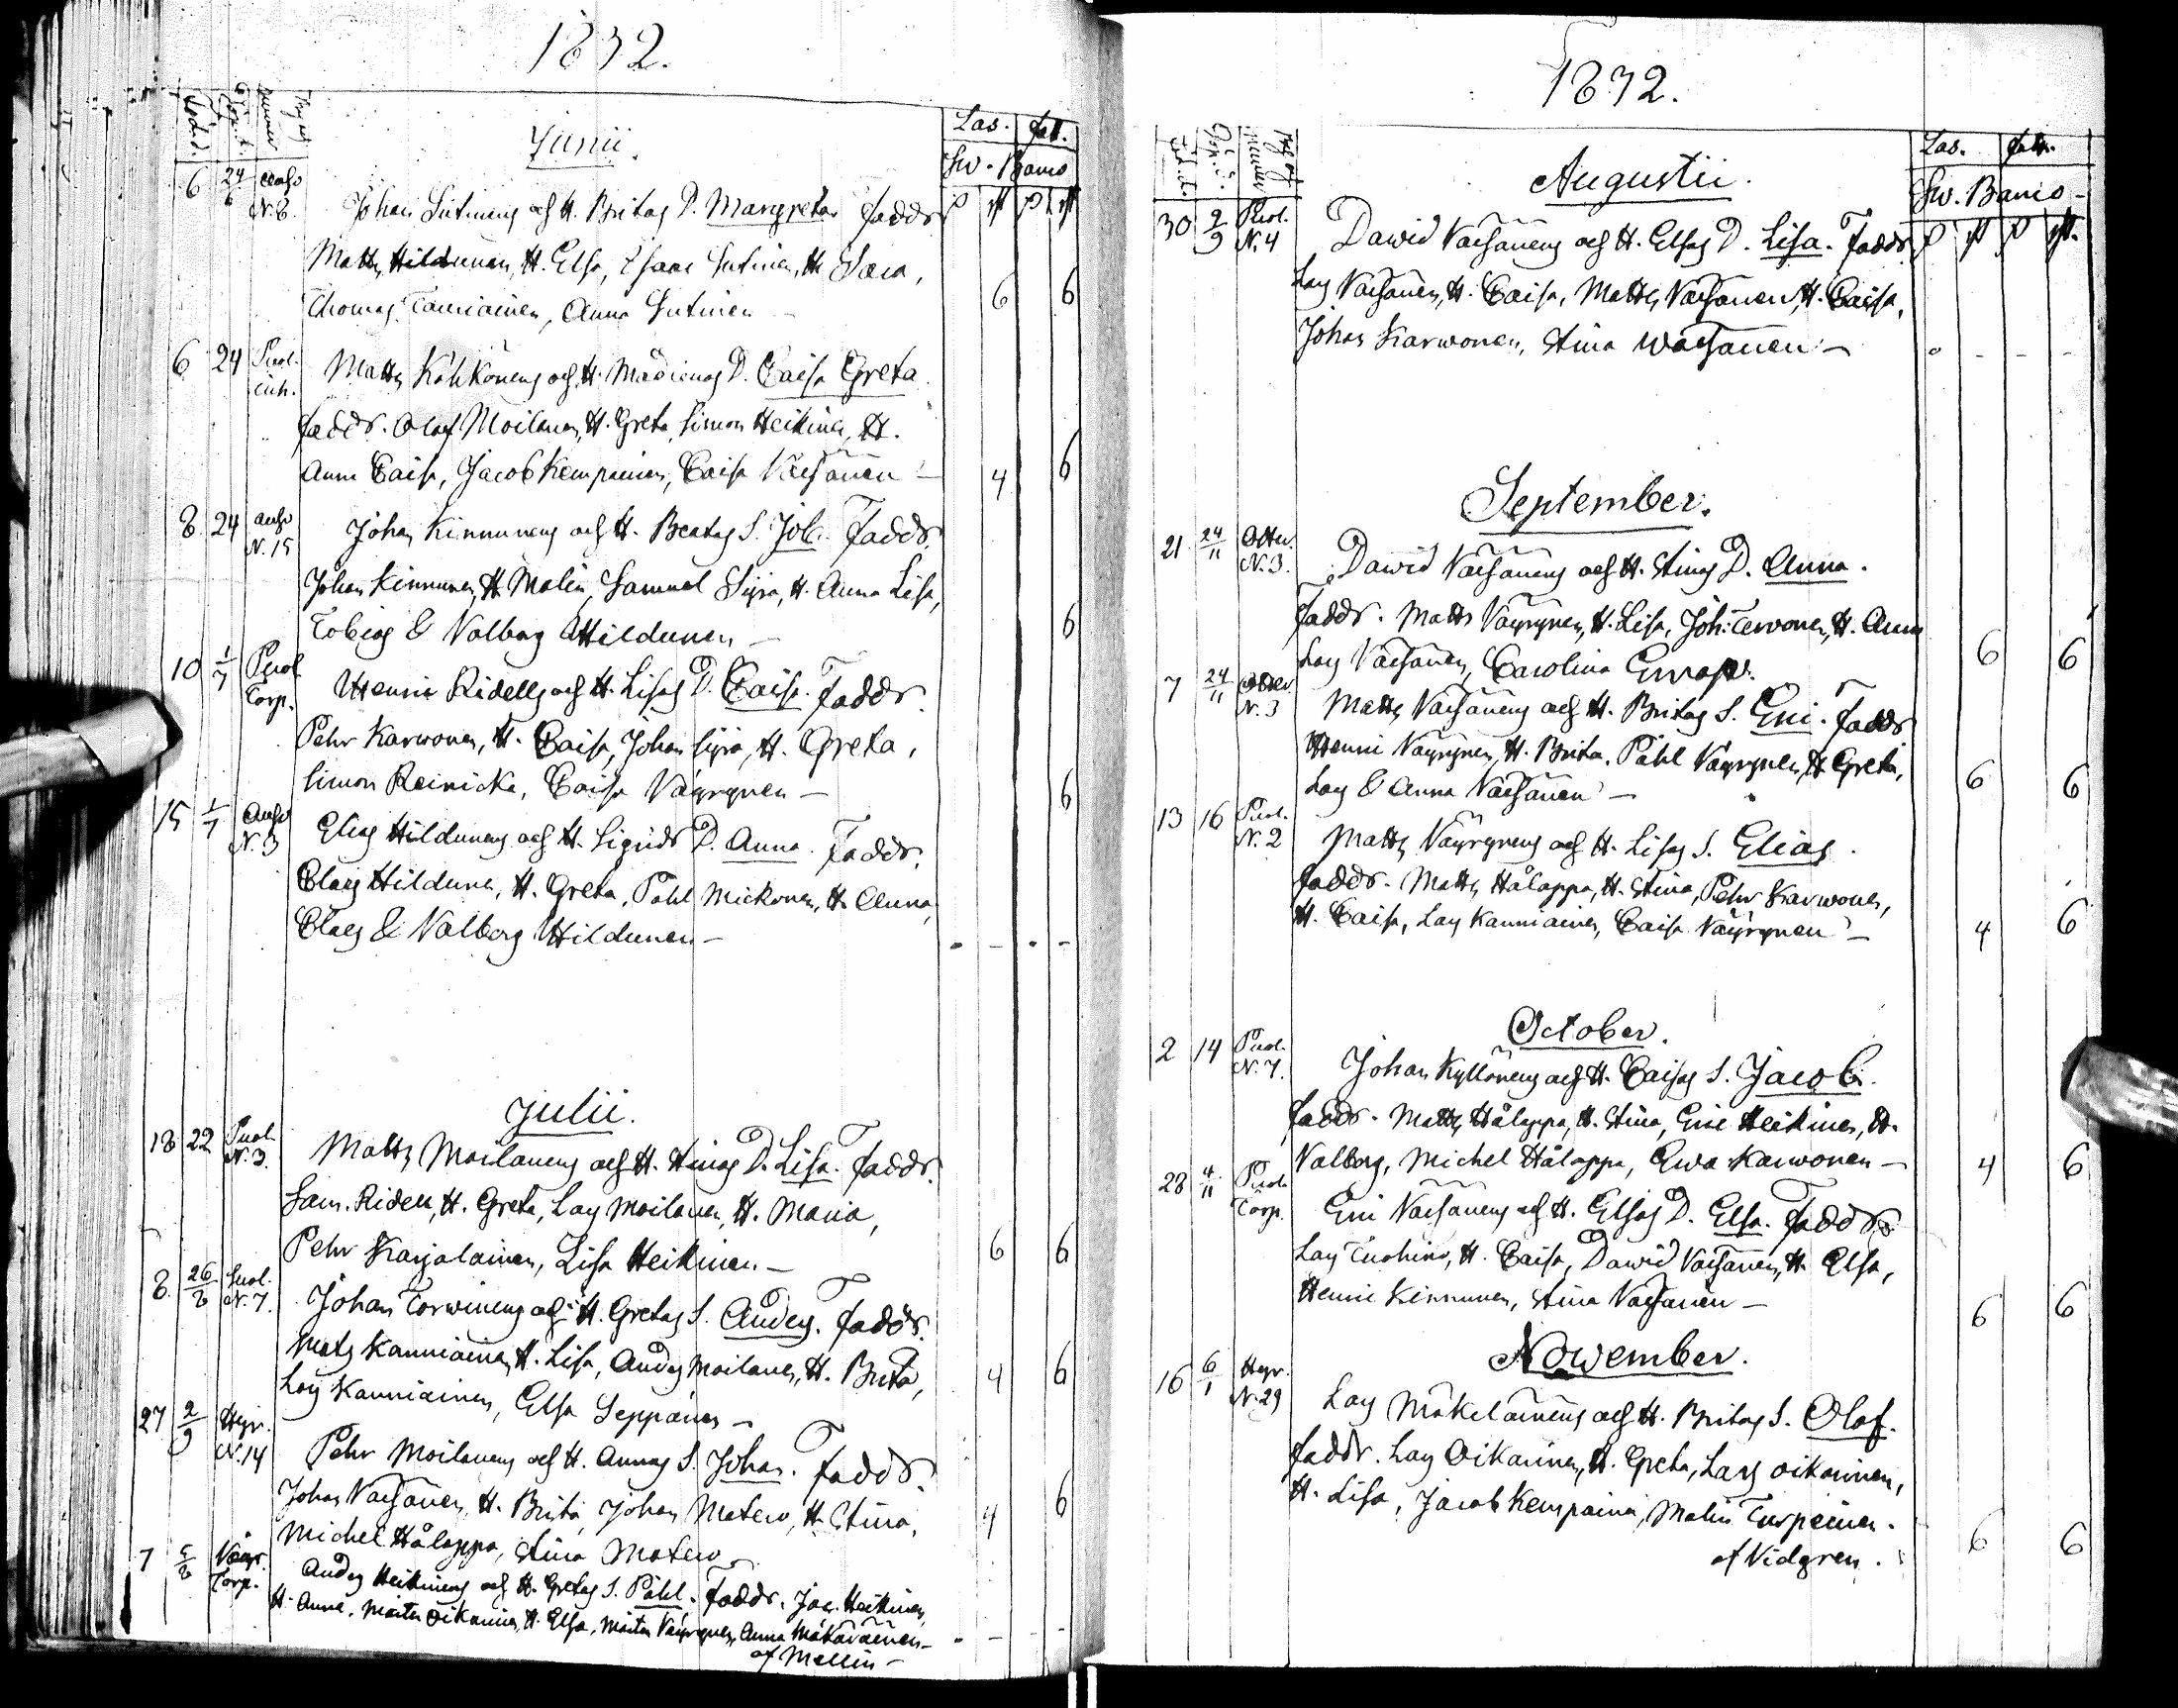 1832.
Födde. Döpte. By och nummer
Junii.
Las. fatt.
Sw. Banco
6 24/6 Anso N. 6. Johan Sutinens och H. Britas D. Margreta. Faddr.
Matts Hildunen, H. Elsa, Isaac Sutinen, H. Sara,
Thomas Tauriainen, Anna Sutinen 6 6
6 24 Puol. inh. Matts Kähkönens och H. Madlenas D. Caisa Greta.
Faddr. Olof Moilanen, H. Greta, Simon Heikinen, H.
Anna Caisa, Jacob Kempainen, Caisa Väisänen – 4 6
8 24 Anso N. 15 Johan Kinnunens och H. Beatas S. Job. Faddr.
Johan Kinnunen, H. Malin, Samuel Syrja, H. Anna Lisa,
Tobias & Valborg Hildunen – 6
10 1/7 Puol. Torp. Henric Ridells och H. Lisas D. Caisa. Faddr.
Pehr Karwonen, H. Caisa, Johan Syrja, H. Greta,
Simon Reinicka, Caisa Väyrynen – 6
15 1/7 Anso N. 3 Elias Hildunens och H. Sigrids D. Anna. Faddr.
Claes Hildunen, H. Greta, Påhl Mickonen, H. Anna,
Claes & Valborg Hildunen –
Julii.
18 22 Puol. N. 3. Matts Moilanens och H. Stinas D. Lisa. Faddr.
Sam. Ridell, H. Greta, Lars Moilanen, H. Maria,
Pehr Karjalainen, Lisa Heikinen – 6 6
8 26/8 Suol. N. 7. Johan Torwinens och H. Gretas S. Anders. Faddr.
Mats Kanniainen, H. Lisa, Anders Moilanen, H. Brita,
Lars Kanniainen, Elsa Seppänen – 4 6
27 2/9 Hyr. N. 14 Pehr Moilanens och H. Annas S. Johan. Faddr.
Johan Väisänen, H. Brita, Johan Matero, H. Stina,
Michel Hålappa, Stina Matero 4 6
7 5/8 Väyr. Torp. Anders Heikinens och H. Gretas S. Påhl. Faddr. Jac. Heikinen,
H. Anna, Mårten Oikarinen, H. Elsa, Mårten Väyrynen, Anna Mäkäräinen –
af Mellin –
1832.
Född. Döpt. By och nummer
Augustii.
Las. fatt.
Sw. Banco
30 2/9 Puol. N. 4 Dawid Väisänens och H. Elsas D. Lisa. Faddr.
Lars Väisänen, H. Caisa, Matts Väisänen, H. Caisa,
Johan Karwonen, Stina Wäisänen –
September.
21 24/11 Otter. N. 3. Dawid Väisänens och H. Stinas D. Anna.
Faddr. Matts Väyrynen, H. Lisa, Joh. Tervonen, H. Anna
Lars Väisänen, Carolina Europ. 6 6
7 24/11 Otter. N. 3 Matts Väisänens och H. Britas S. Eric. Faddr.
Henric Väyrynen, H. Brita, Påhl Väyrynen, H. Greta,
Lars & Anna Väisänen – 6 6
13 16 Puol. N. 2 Matts Väyrynens och H. Lisas S. Elias.
Faddr. Matts Hålappa, H. Stina, Pehr Karwonen,
H. Caisa, Lars Kanniainen, Caisa Väyrynen – 4 6
October.
2 14 Puol. N. 7. Johan Kyllönens och H. Caisas S. Jacob.
Faddr. Matts Hålappa, H. Stina, Eric Heikinen, H.
Valborg, Michel Hålappa, Ewa Karwonen – 4 6
28 4/11 Puol. Torp. Eric Väisänens och H. Elsas D. Elsa. Faddr.
Lars Tuohino, H. Caisa, Dawid Väisänen, H. Elsa,
Henric Kinnunen, Stina Väisänen – 6 6
Nowember.
16 6/1 Hyr. N. 29 Lars Mäkeläinens och H. Britas S. Olof.
Faddr. Lars Oikarinen, H. Greta, Lars Oikarinen,
H. Lisa, Jacob Kempainen, Malin Turpeinen.
af Vidgren. 6 6